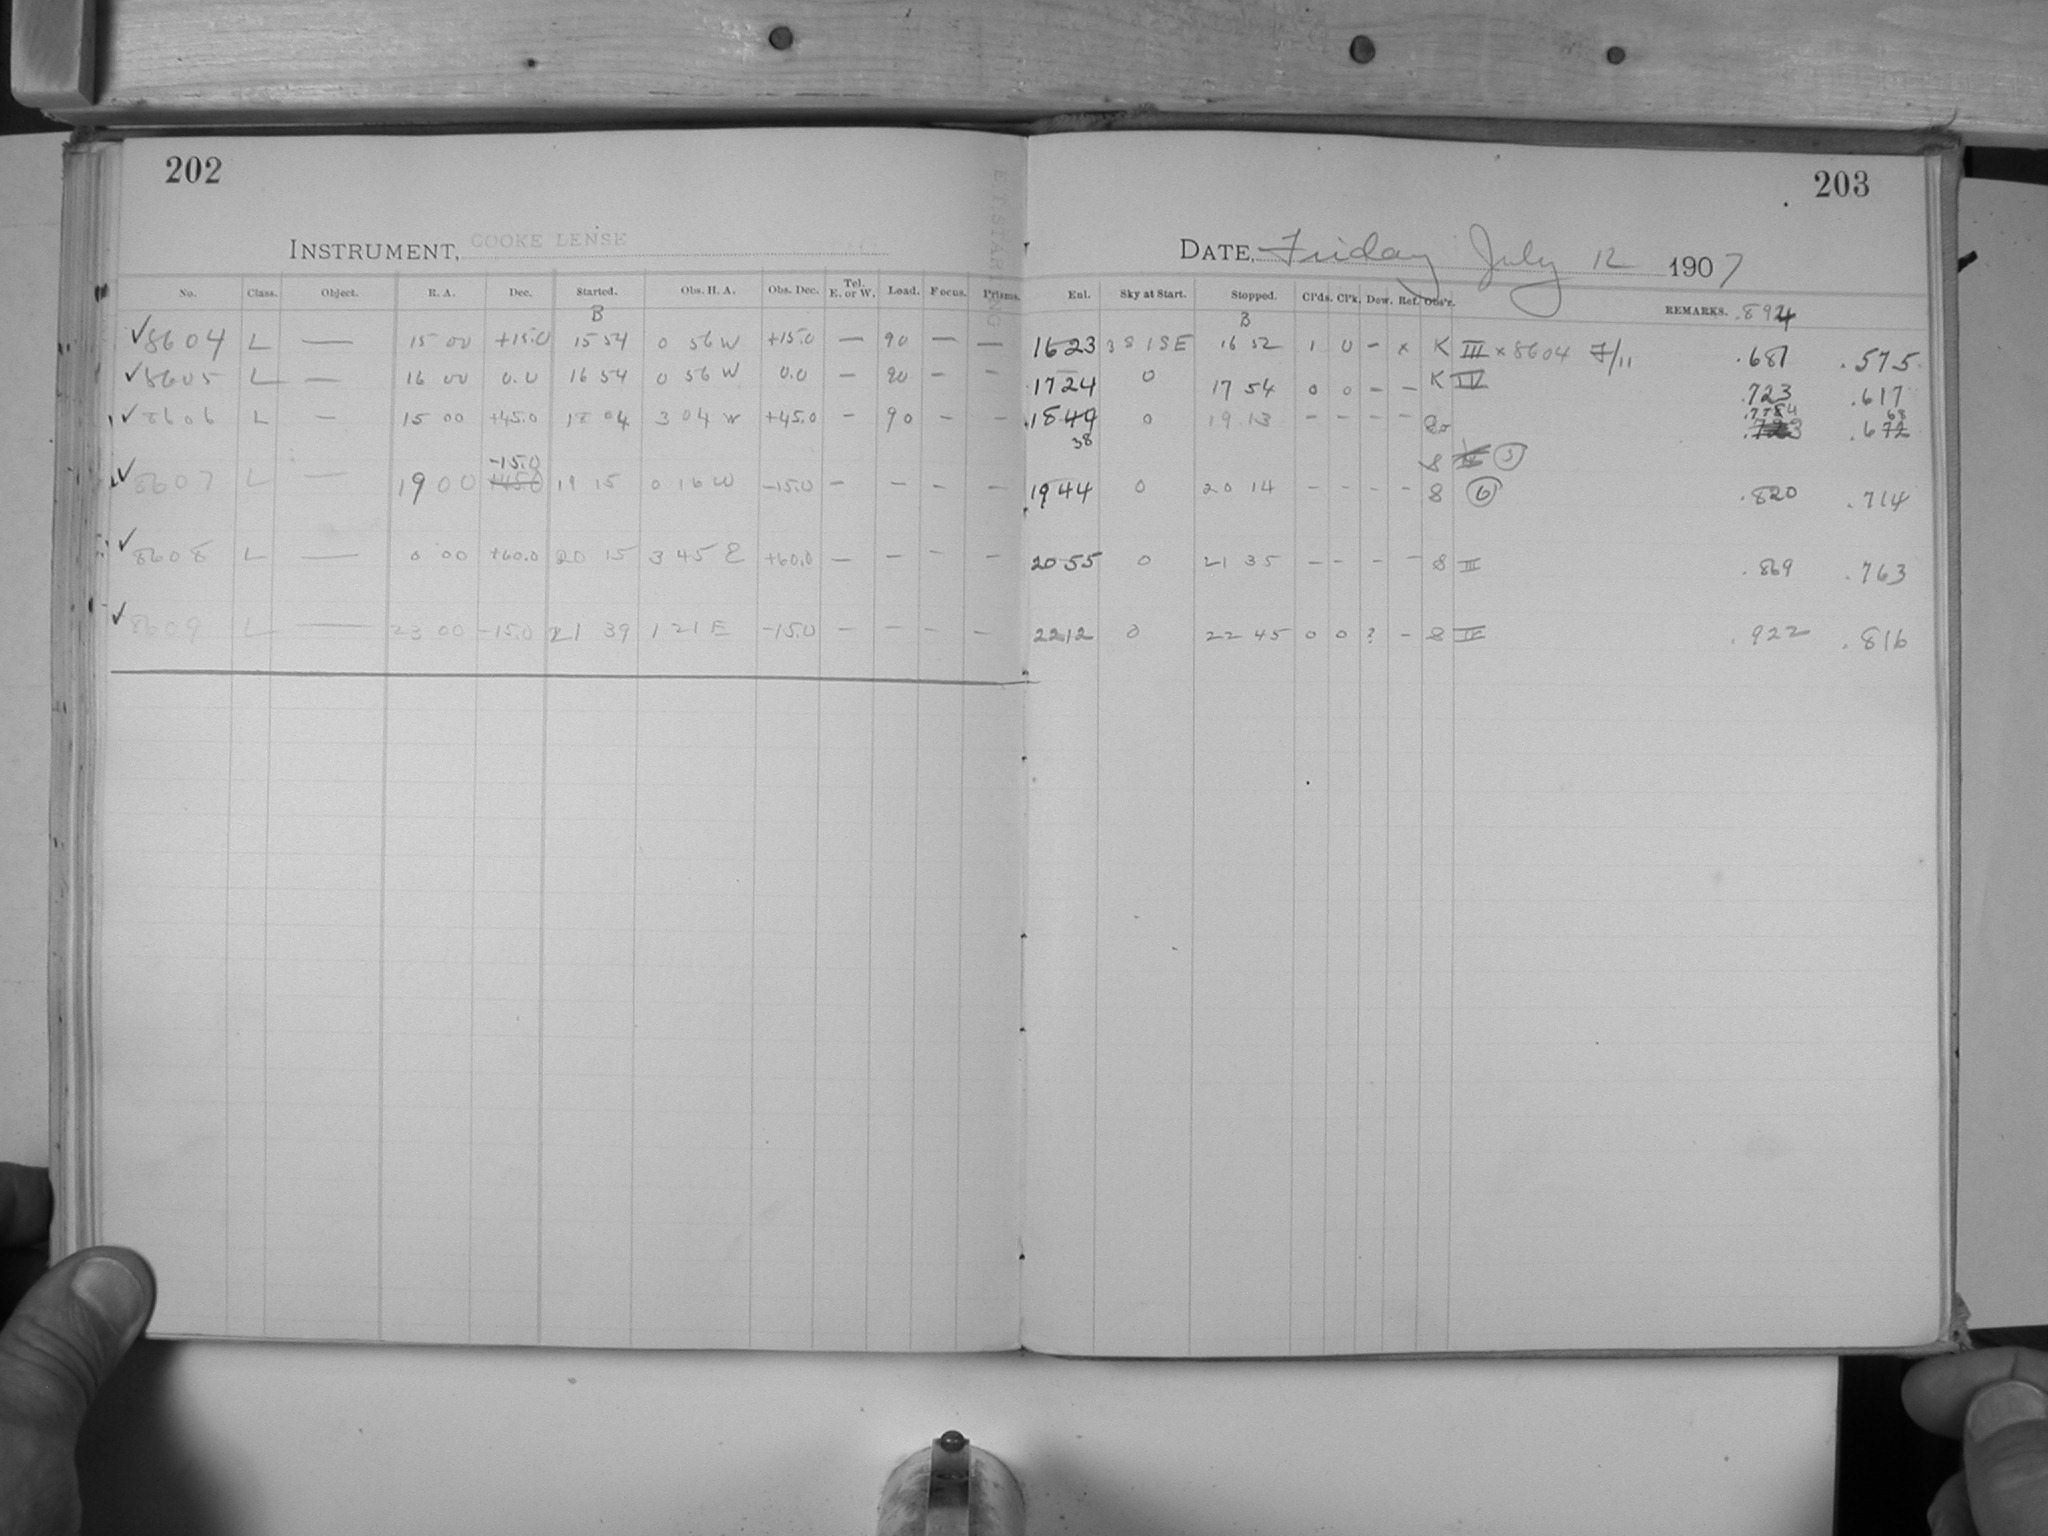 202
INSTRUMENT, COOKE LENSE
No. Class. Object. R. A. Dec. Started. Obs. H. A. Obs. Dec. Tel. E. or W. Load. Focus. Prisms.
B
✓8604 L — 15 00 +15.0 15 54 0 56 W +15.0 — 90 — —
✓8605 L — 16 00 0.0 16 54 0 56 W 0.0 — 90 — —
✓8606 L — 15 00 +45.0 18 04 3 04 W +45.0 — 90 — —
-15.0
✓8607 L — 19 00 +45.0 19 15 0 16 W -15.0 — — — —
✓8608 L — 0 00 +60.0 20 15 3 45 E +60.0 — — — —
✓8609 L — 23 00 -15.0 21 39 1 21 E -15.0 — — — —
203
DATE, Friday July 12 1907
Enl. Sky at Start. Stopped. Cl'ds. Cl'k. Dew. Ref. Obs'r. REMARKS. .894
B
1623 3 S 1 S E 16 52 1 0 – x K III x 8604 7/11 .681 .575
1724 0 17 54 0 0 – – K IV .723 .617
1849 0 19 13 – – – – .723 .672
38
S 5
1944 0 20 14 – – – – S 6 .820 .714
2055 0 21 35 – – – – S III .869 .763
2212 0 22 45 0 0 ? – S IV .922 .816